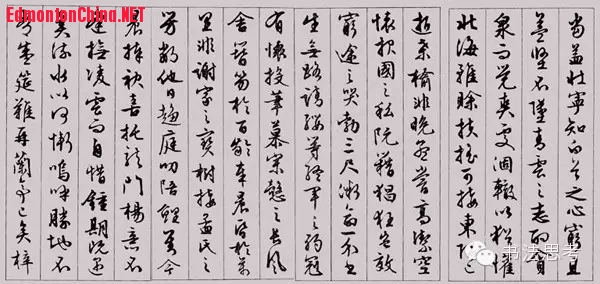 EdmontonChina.NET
當益壯寧知白首之心窮且
益堅不墜青雲之志酌貪
泉而覺爽處涸轍以猶懽
北海雖賒扶搖可接東隅已
逝桑榆非晚孟嘗高潔空
懷報國之私阮籍猖狂豈效
窮途之哭勃三尺微命一介書
生無路請纓等終軍之弱冠
有懷投筆慕宗愨之長風
舍簪笏於百齡奉晨昏於萬
里非謝家之寶樹接孟氏之
芳鄰他日趨庭叨陪鯉對今
晨捧袂喜托龍門楊意不
逢撫凌雲而自惜鍾期既遇
奏流水以何慚嗚呼勝地不
常盛筵難再蘭亭已矣梓
书法思考